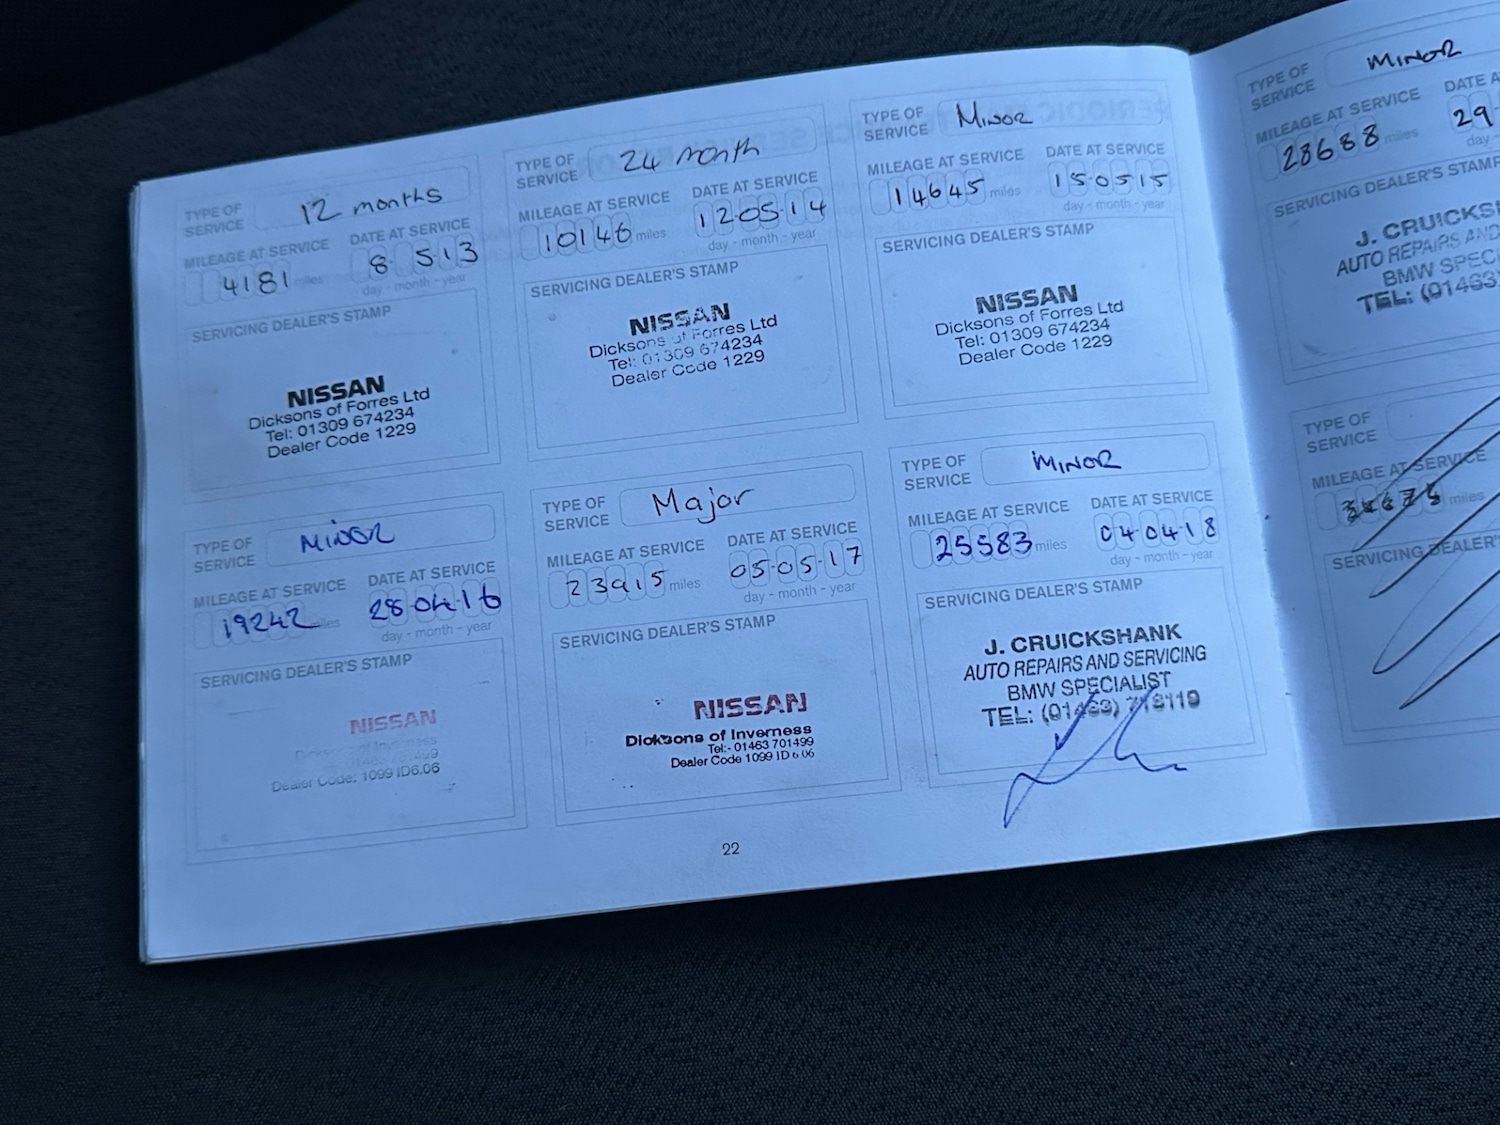 TYPE OF SERVICE 12 months
MILEAGE AT SERVICE DATE AT SERVICE
4181 miles 8 5 13
day - month - year
SERVICING DEALER'S STAMP
NISSAN
Dicksons of Forres Ltd
Tel: 01309 674234
Dealer Code 1229
TYPE OF SERVICE 24 month
MILEAGE AT SERVICE DATE AT SERVICE
10146 miles 12·05·14
day - month - year
SERVICING DEALER'S STAMP
NISSAN
Dicksons of Forres Ltd
Tel: 01309 674234
Dealer Code 1229
TYPE OF SERVICE Minor
MILEAGE AT SERVICE DATE AT SERVICE
14645 miles 15·05·15
day - month - year
SERVICING DEALER'S STAMP
NISSAN
Dicksons of Forres Ltd
Tel: 01309 674234
Dealer Code 1229
TYPE OF SERVICE MINOR
MILEAGE AT SERVICE DATE AT SERVICE
19242 miles 28·04·16
day - month - year
SERVICING DEALER'S STAMP
NISSAN
Dealer Code: 1099 ID6.06
TYPE OF SERVICE Major
MILEAGE AT SERVICE DATE AT SERVICE
23915 miles 05·05·17
day - month - year
SERVICING DEALER'S STAMP
NISSAN
Dicksons of Inverness
Tel:- 01463 701499
Dealer Code 1099 ID 6 06
TYPE OF SERVICE MINOR
MILEAGE AT SERVICE DATE AT SERVICE
25583 miles 040418
day - month - year
SERVICING DEALER'S STAMP
J. CRUICKSHANK
AUTO REPAIRS AND SERVICING
BMW SPECIALIST
TEL: (01463)
22
TYPE OF SERVICE MINOR
MILEAGE AT SERVICE DATE A
28688 miles 29
day
SERVICING DEALER'S STAMP
J. CRUICKS
AUTO REPAIRS AND
BMW SPECI
TEL: (01463)
TYPE OF SERVICE
MILEAGE AT SERVICE
miles
SERVICING DEALER'S